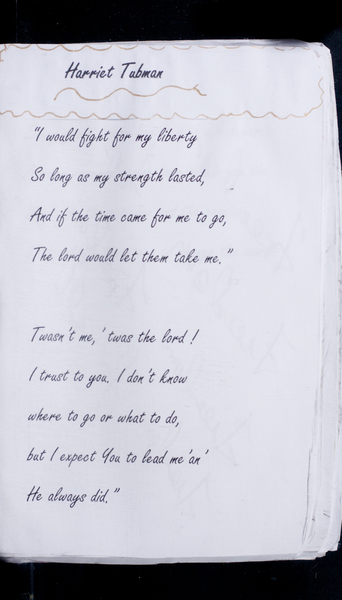 Harriet Tubman
"I would fight for my liberty
So long as my strength lasted,
And if the time came for me to go,
The lord would let them take me."
Twasn't me,' twas the lord !
I trust to you. I don't know
where to go or what to do,
but I expect You to lead me'an'
He always did."